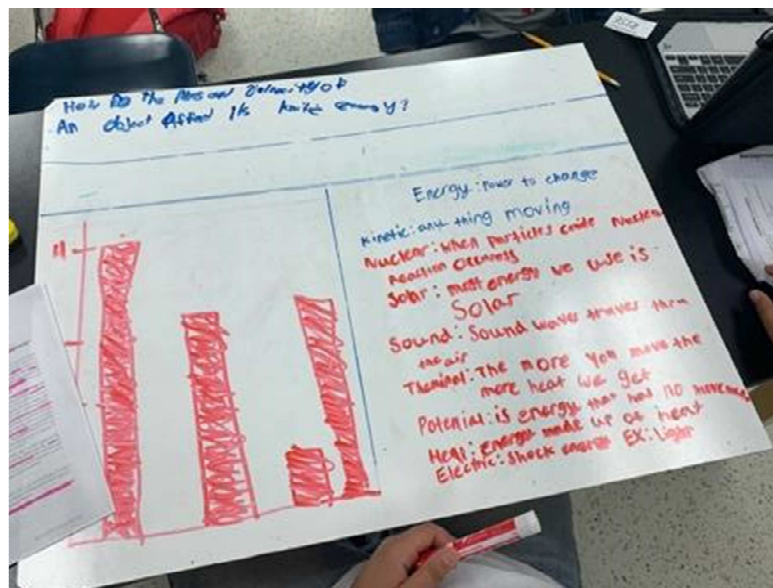 How Do the Mass and Velocity of
An object Affect Its kinetic energy?
Energy: Power to change
Kinetic: any thing moving
Nuclear: When particles Nuclear
Reaction
Solar: most energy we use is
Solar
Sound: Sound waves thru
the air
The more You move the
more heat we get
is energy that has no
Heat: energy made up of heat
Electric: Shock energy EX: Light
4